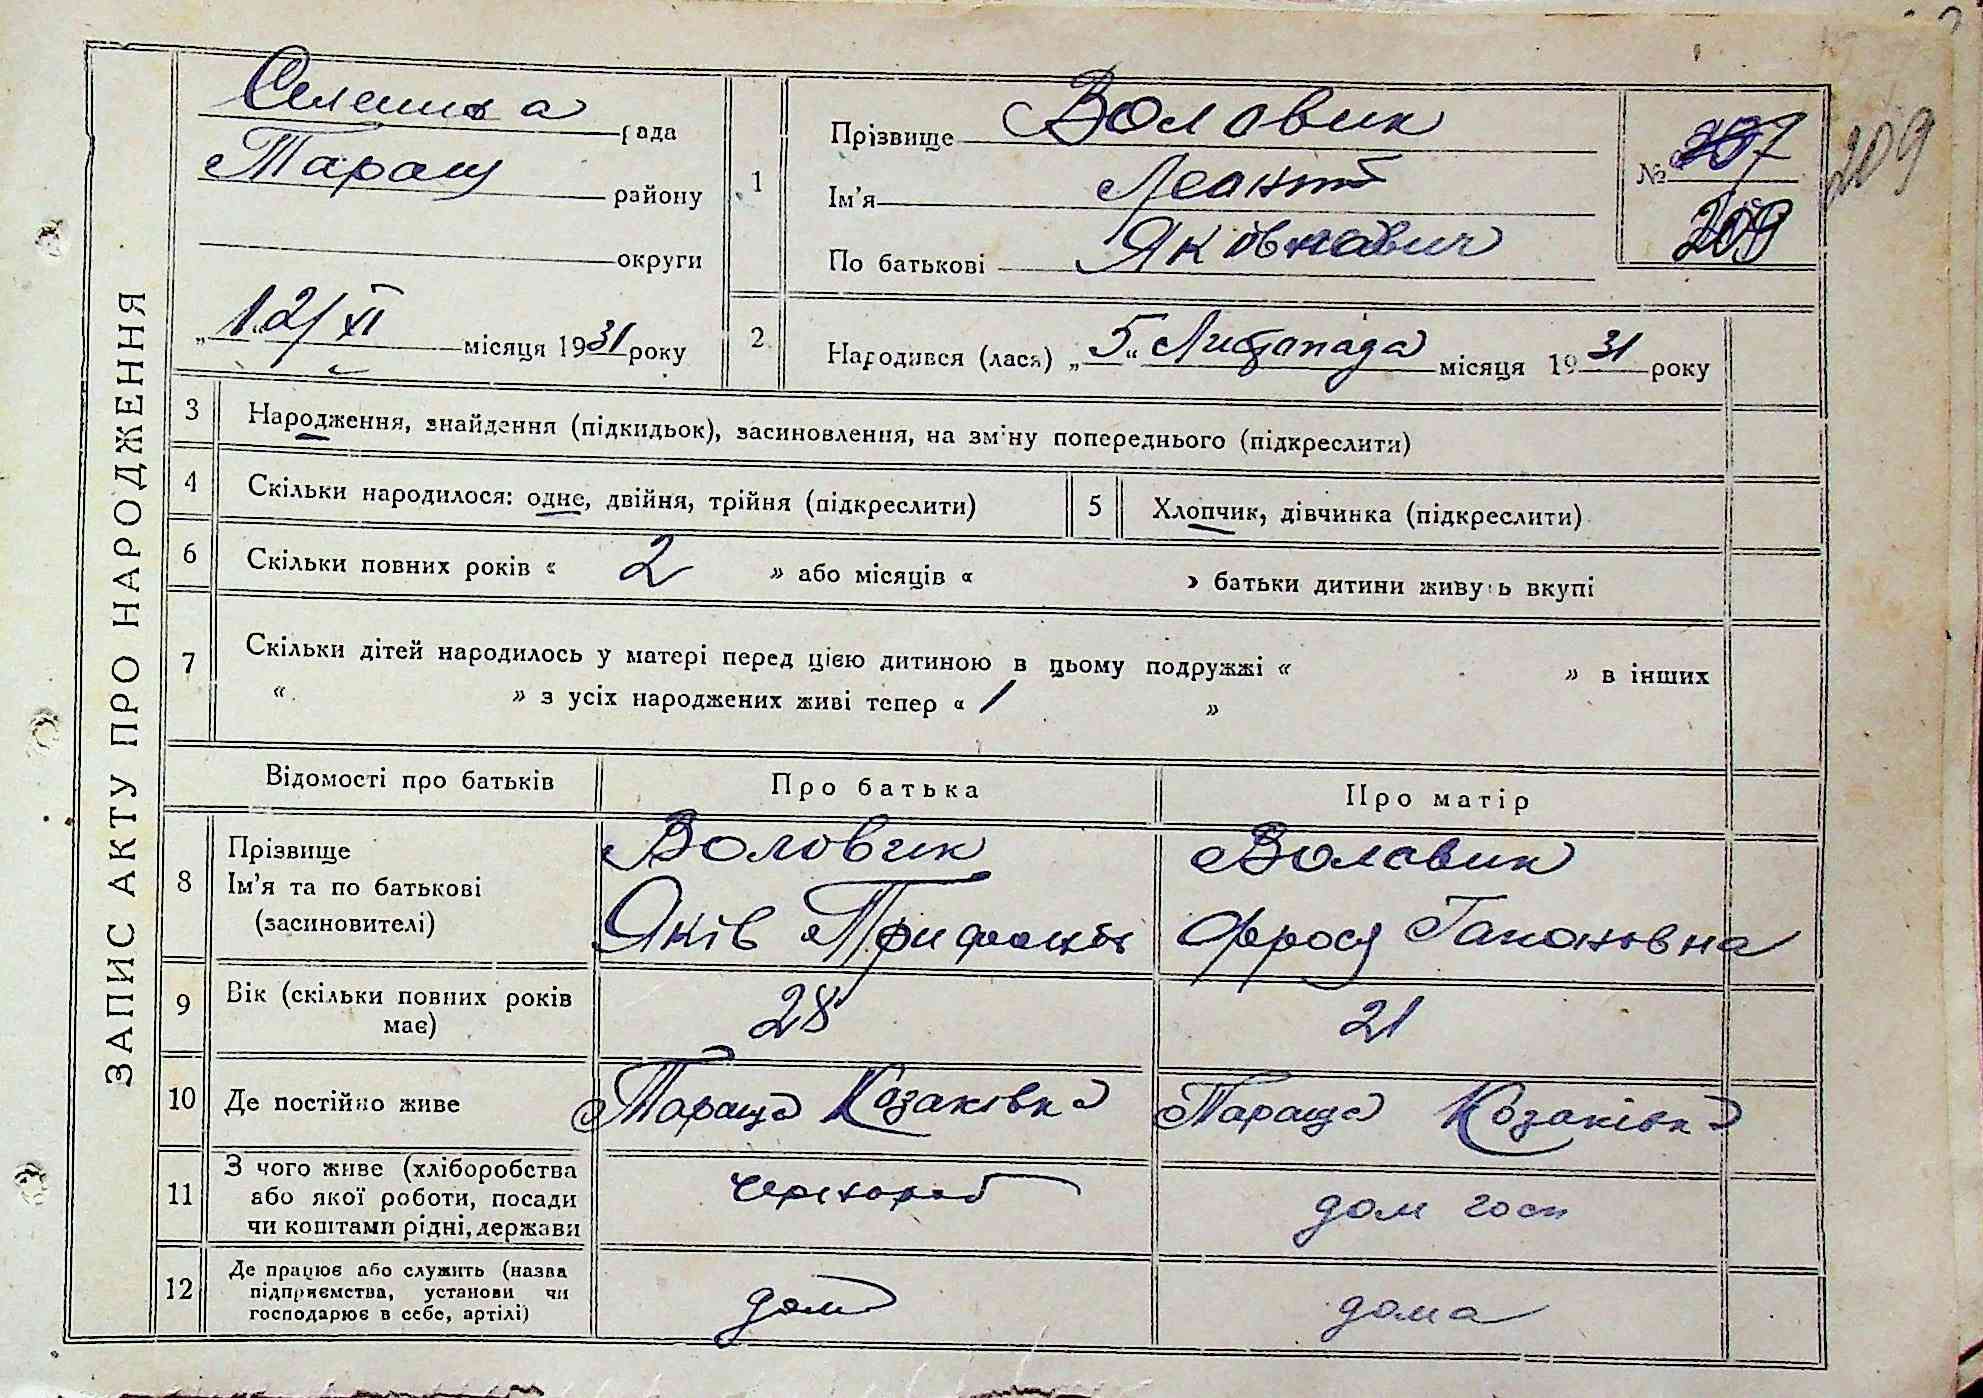 ЗАПИС АКТУ ПРО НАРОДЖЕННЯ
Селещна рада
Таращ району
округи
„12/XI місяця 1931 року
1
Прізвище Воловик
Ім'я Леонтій
По батькові Яківович
№ 207
209
209
2
Народився (лася) „5“ Листопада місяця 1931 року
3 Народження, знайдення (підкидьок), засиновлення, на зміну попереднього (підкреслити)
4 Скільки народилося: одне, двійня, трійня (підкреслити)
5 Хлопчик, дівчинка (підкреслити)
6 Скільки повних років « 2 » або місяців « » батьки дитини живуть вкупі
7 Скільки дітей народилось у матері перед цією дитиною в цьому подружжі « » в інших
« » з усіх народжених живі тепер « 1 »
Відомості про батьків Про батька Про матір
8 Прізвище Воловик Волавик
Ім'я та по батькові
(засиновителі) Яків Фрося Гапоновна
9 Вік (скільки повних років
має) 28 21
10 Де постійно живе Тараща Козаківка Тараща Козаківка
11 З чого живе (хліборобства
або якої роботи, посади
чи коштами рідні, держави дом госп
12 Де працює або служить (назва
підприємства, установи чи
господарює в себе, артілі) дома дома